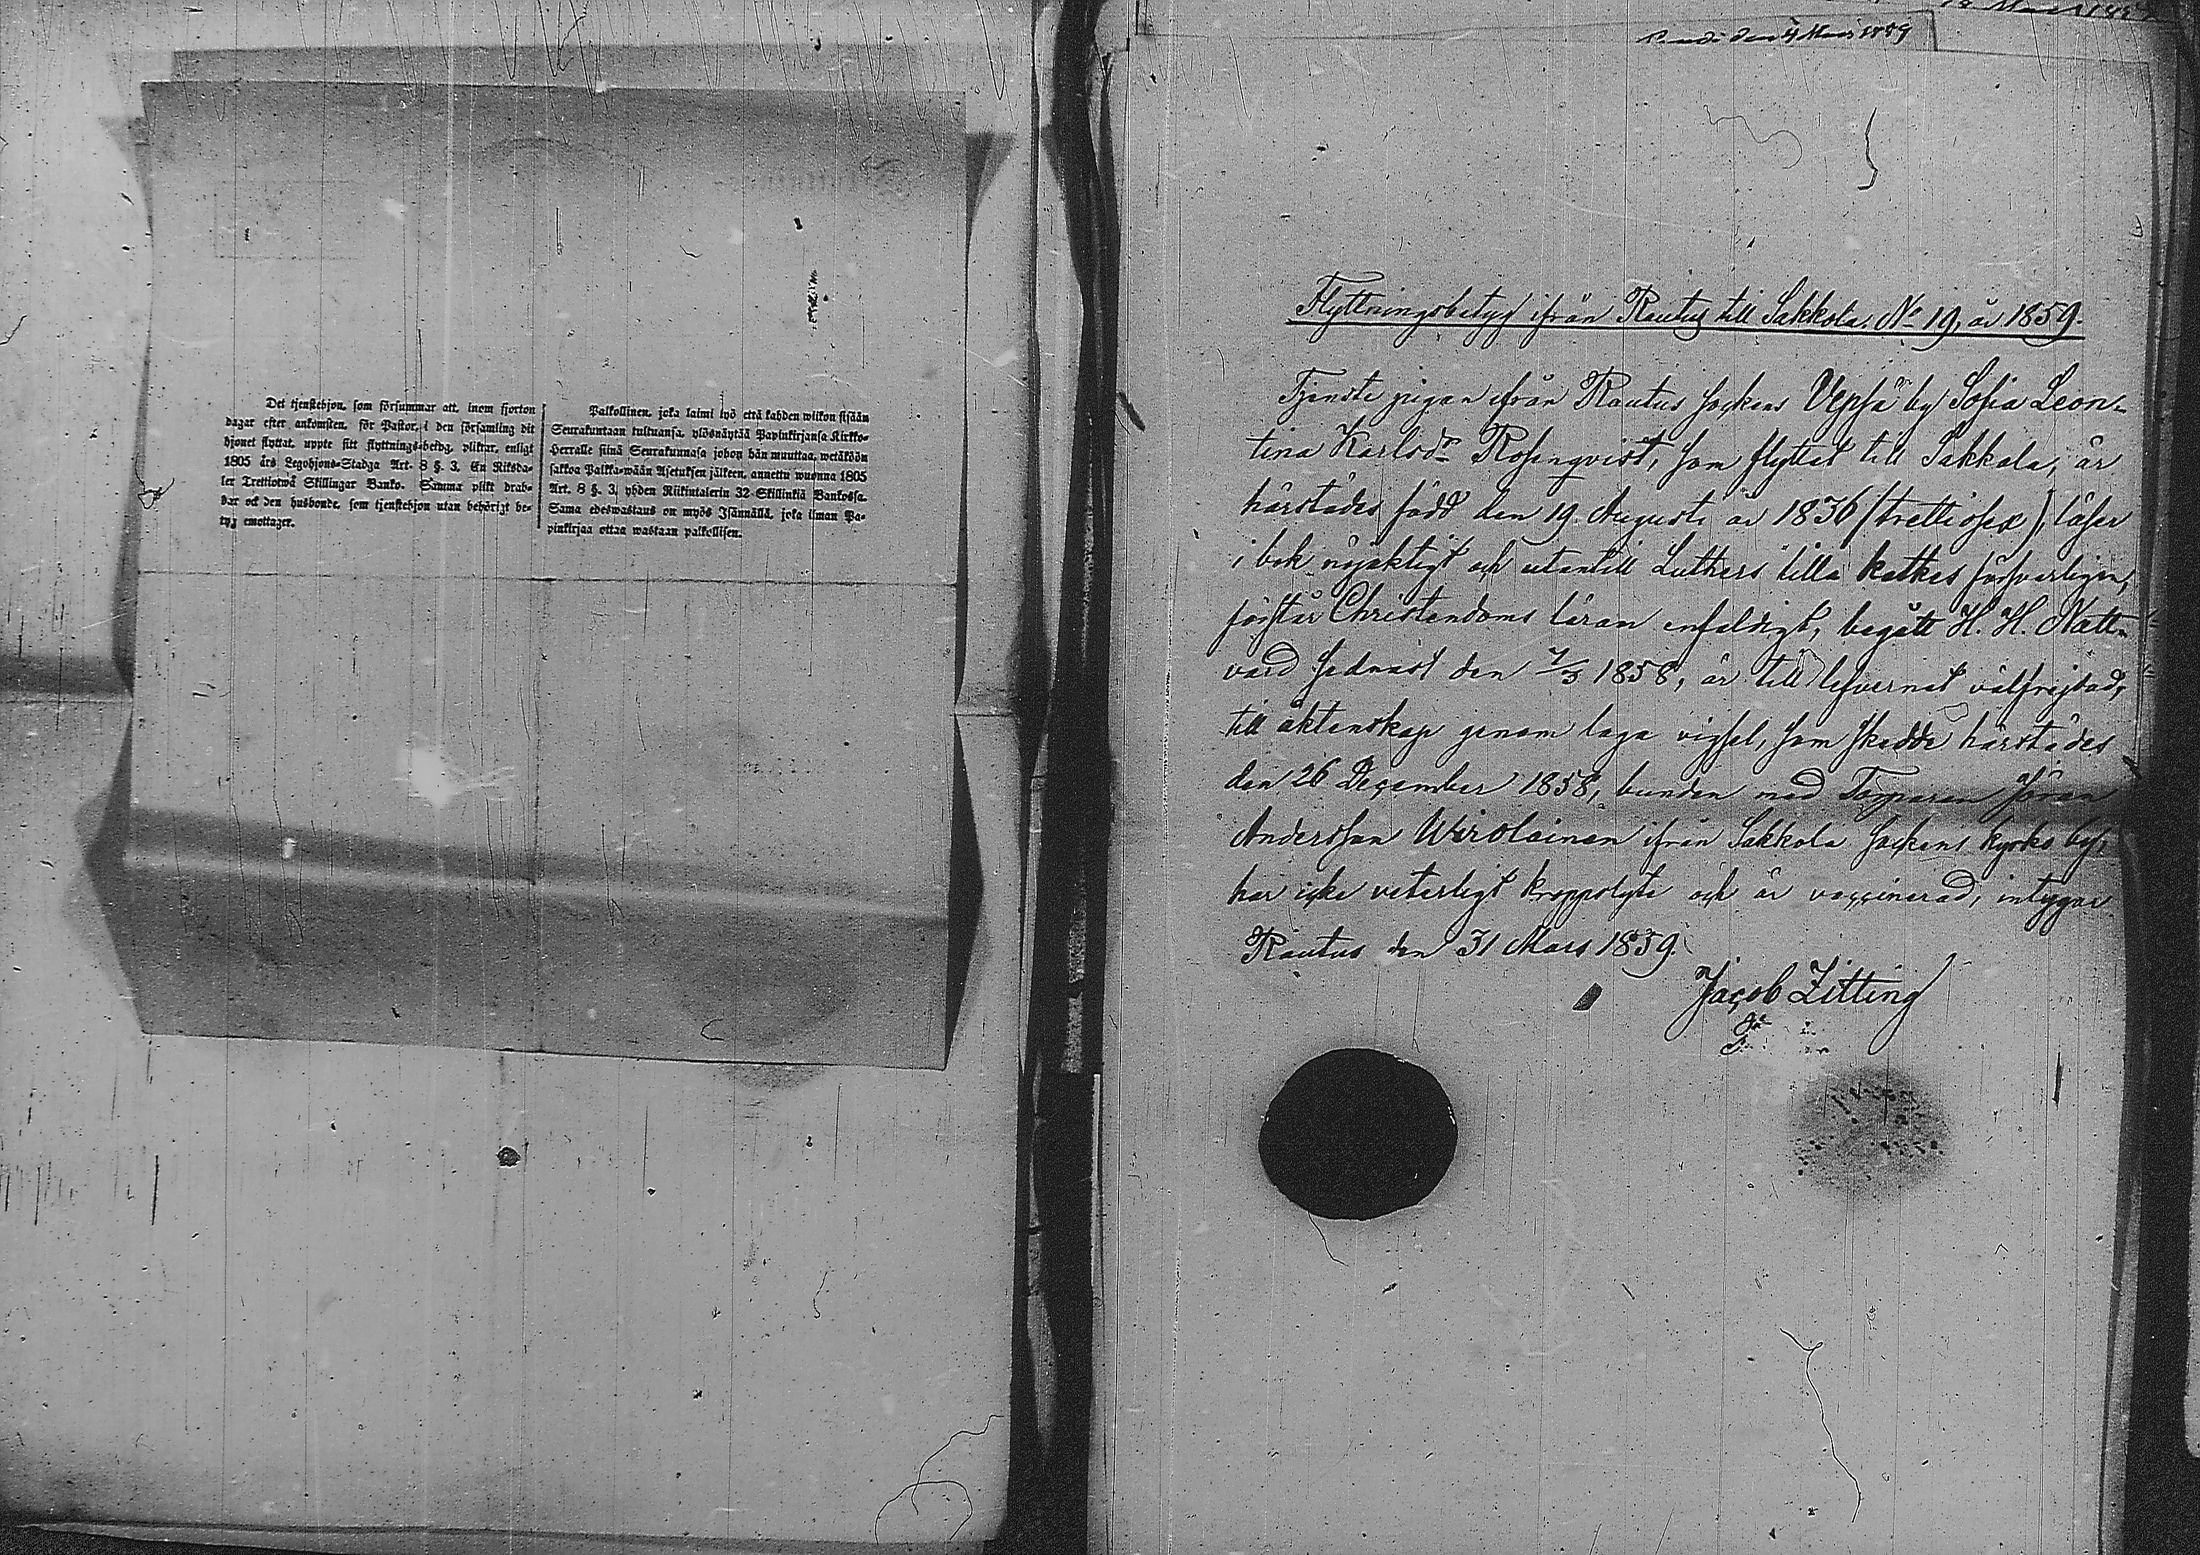 Det tjenstehjon, som försummar att, inom fjorton
dagar efter ankomsten, för Pastor, i den församling dit
hjonet flyttat, uppte sitt flyttnings-betyg, pliktar, enligt
1805 års Legohjons-Stadga Art. 8 §. 3. En Riksda-
ler Trettiotwå Skillingar Banko. Samma plikt drab-
bar ock den husbonde, som tjenstehjon utan behörigt be-
tyg emottager.
Palkollinen, joka laimi lyö että kahden wiikon sisään
Seurakuntaan tultuansa, ylösnäytää Papinkirjansa Kirkko-
Herralle siinä Seurakunnasa johon hän muuttaa, wetäköön
sakkoa Palkka-wään Asetuksen jälkeen, annettu wuonna 1805
Art. 8 §. 3, yhden Riikintalerin 32 Skillinkiä Bankossa.
Sama edeswastaus on myös Isännällä, joka ilman Pa-
pinkirjaa ottaa wastaan palkollisen.
den 4 Mars 1859
Flyttningsbetyg ifrån Rautus till Sakkola. No 19, år 1859.
Tjenste pigan ifrån Rautus Sockens Vepsä by Sofia Leon-
tina Karlsdr Rosenqvist, som flyttat till Sakkola, är
härstädes född den 19 Augusti år 1836 (trettiosex), läser
i bok nöjaktigt och utantill Luthers lilla kathes försvarligen,
förstår Christendoms läran enfaldigt, begått H. H. Natt-
vard sednast den 7/3 1858, är till lefvernet välfrejdad,
till äktenskap genom laga vigsel, som skedde härstädes
den 26 December 1858, bunden med Torparen Jöran
Andersson Wirolainen ifrån Sakkola Sockens kyrko by,
har icke veterligt kroppslyte och är vaccinerad, intygar
Rautus den 31 Mars 1859.
Jacob Zitting